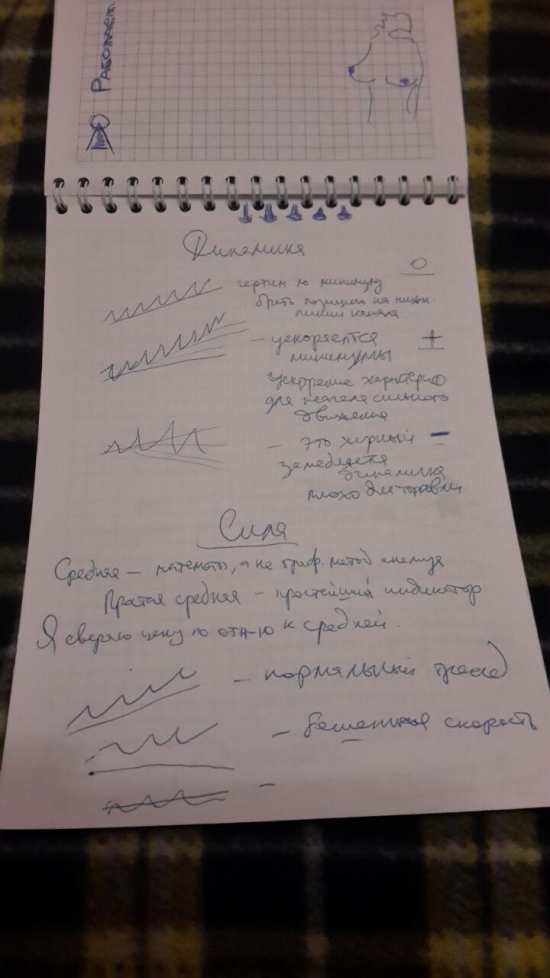 Работает
Динамика
0
чертим по минимуму
брать позицию на нижн.
линии канала
- ускоряется +
минимумы
ускорение характерно
для начала сильного
движения
- Это жирный -
замедляется
динамика
плохо для торговли
Сила
Средняя - математ, а не граф. метод анализа
Простая средняя - простейший индикатор
Я сверяю цену по отн-ю к средней.
- нормальный тренд
- бешенная скорость
-